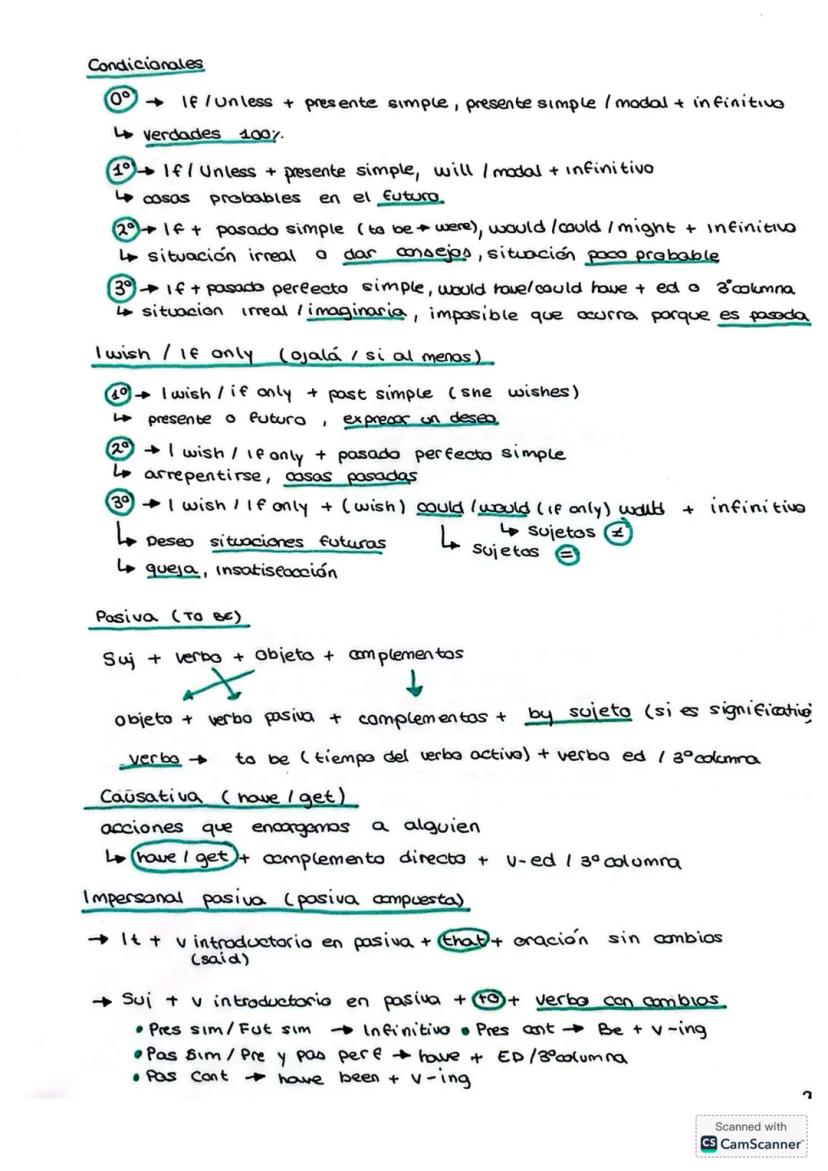 Condicionales
0º → If / Unless + presente simple, presente simple / modal + infinitivo
↳ verdades 100%
1º → If / Unless + presente simple, will / modal + infinitivo
↳ cosas probables en el futuro
2º → If + pasado simple (to be → were), would / could / might + infinitivo
↳ situación irreal o dar consejos, situación poco probable
3º → If + pasado perfecto simple, would have/could have + ed o 3ºcolumna
↳ situacion irreal / imaginaria, imposible que ocurra porque es pasada
I wish / If only (ojalá / si al menos)
1º → I wish / if only + past simple (she wishes)
↳ presente o futuro, expresar un deseo
2º → I wish / if only + pasado perfecto simple
↳ arrepentirse, cosas pasadas
3º → I wish / If only + (wish) could / would (if only) would + infinitivo
↳ sujetos ≠
↳ Deseo situaciones futuras ↳ sujetos =
↳ queja, insatisfacción
Pasiva (TO BE)
Suj + verbo + objeto + complementos
objeto + verbo pasiva + complementos + by sujeto (si es significativo
verbo → to be (tiempo del verbo activo) + verbo ed / 3º columna
Causativa (have / get)
acciones que encargamos a alguien
↳ have / get + complemento directo + V-ed / 3º columna
Impersonal pasiva (pasiva compuesta)
→ It + v introductorio en pasiva + that + oración sin cambios
(said)
→ Suj + v introductorio en pasiva + to + verbo con cambios
• Pres sim / Fut sim → Infinitivo • Pres cont → Be + V-ing
• Pas Sim / Pre y pas perf → have + ED /3ºcolumna
• Pas Cont → have been + V-ing
Scanned with
CS CamScanner